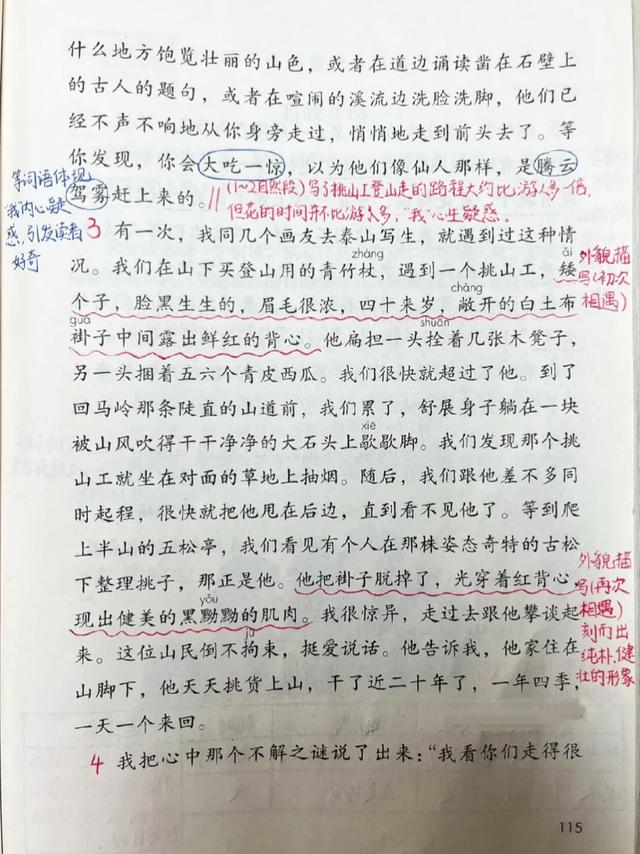 什么地方饱览壮丽的山色，或者在道边诵读凿在石壁上
的古人的题句，或者在喧闹的溪流边洗脸洗脚，他们已
经不声不响地从你身旁走过，悄悄地走到前头去了。等
你发现，你会大吃一惊，以为他们像仙人那样，是腾云
驾雾赶上来的。
等词语体现
“我”内心疑
惑，引发读者
好奇
(1~2自然段)写了挑山工登山走的路程大约比游人多一倍，
但花的时间并不比游人多，“我”心生疑惑。
3 有一次，我同几个画友去泰山写生，就遇到过这种情
zhàng ǎi
况。我们在山下买登山用的青竹杖，遇到一个挑山工，矮
chǎng
个子，脸黑生生的，眉毛很浓，四十来岁，敞开的白土布
guà shuān
褂子中间露出鲜红的背心。他扁担一头拴着几张木凳子，
外貌描
写(初次
相遇)
另一头捆着五六个青皮西瓜。我们很快就超过了他。到了
回马岭那条陡直的山道前，我们累了，舒展身子躺在一块
xiē
被山风吹得干干净净的大石头上歇歇脚。我们发现那个挑
山工就坐在对面的草地上抽烟。随后，我们跟他差不多同
时起程，很快就把他甩在后边，直到看不见他了。等到爬
上半山的五松亭，我们看见有个人在那株姿态奇特的古松
下整理挑子，那正是他。他把褂子脱掉了，光穿着红背心，
yǒu
现出健美的黑黝黝的肌肉。我很惊异，走过去跟他攀谈起
jū
来。这位山民倒不拘束，挺爱说话。他告诉我，他家住在
山脚下，他天天挑货上山，干了近二十年了，一年四季，
一天一个来回。
外貌描
写(再次
相遇)
刻画出
纯朴、健
壮的形象
4 我把心中那个不解之谜说了出来：“我看你们走得很
115